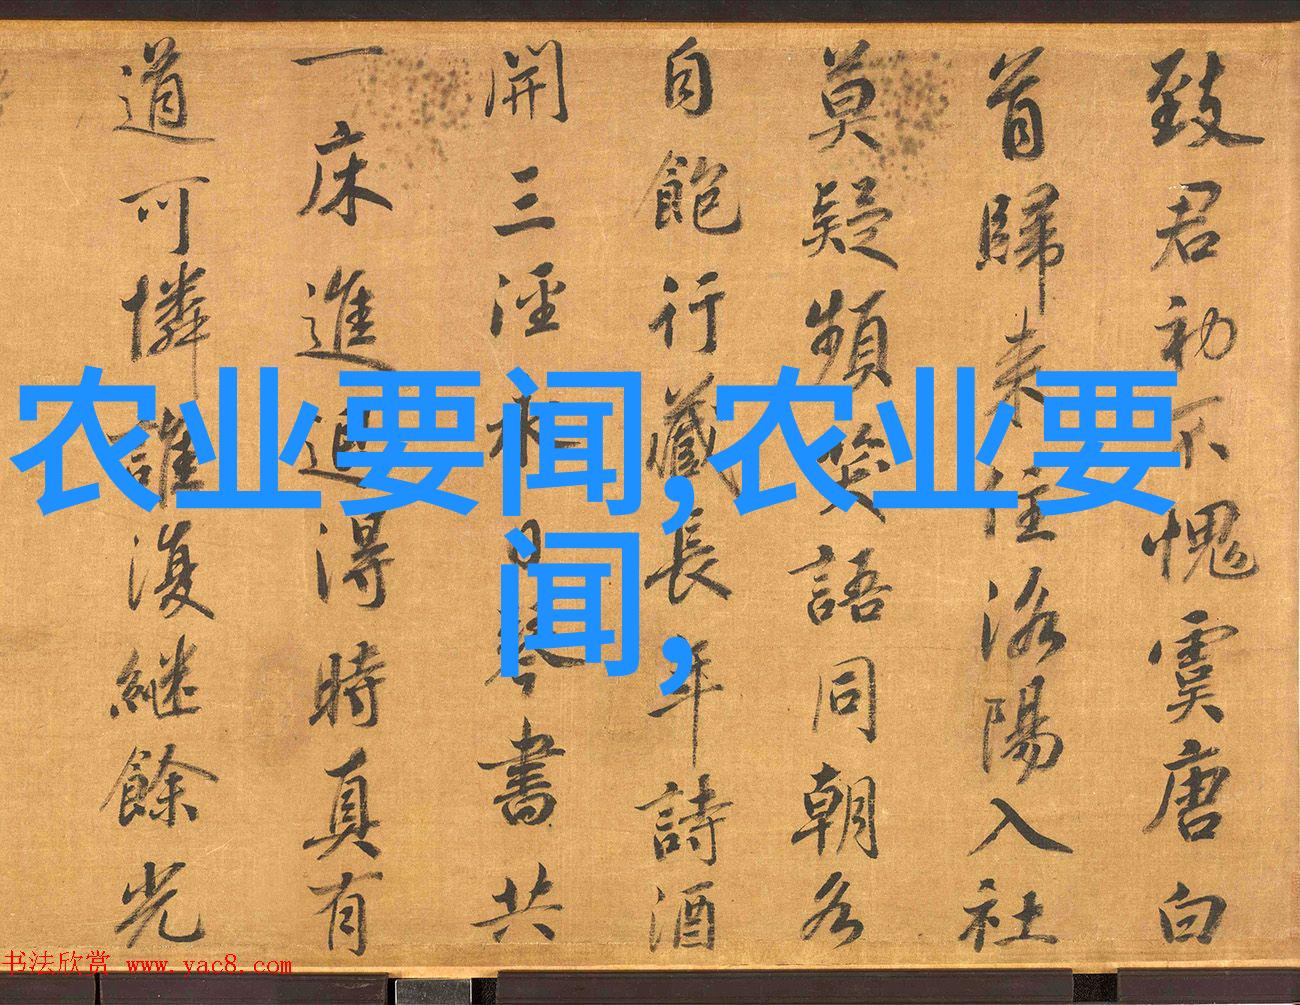 农业要闻,农业要
闻,
致君初不愧虞唐白
首歸来住洛陽入社
莫疑頻笑語同朝各
自飽行藏長年詩酒
開三涇日琴書共
一床進退得時真有
道可憐誰復継餘光
书法欣赏 www.yac8.com